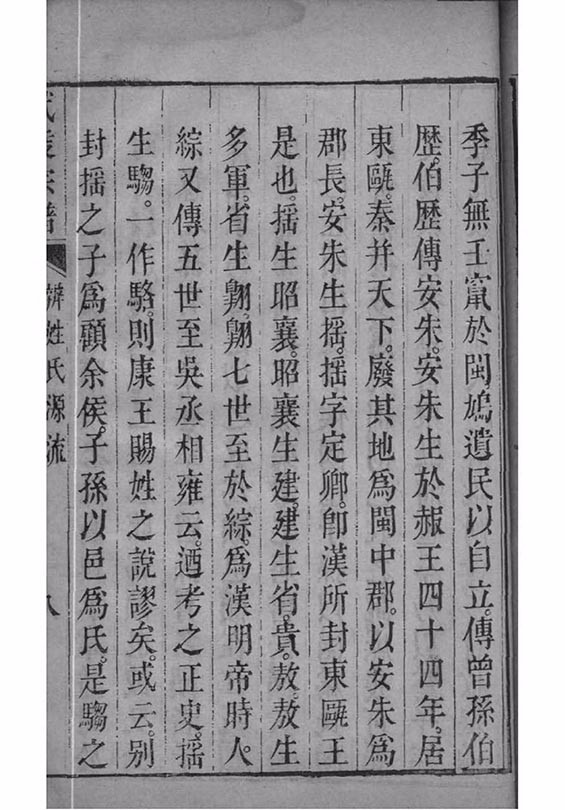 季子無壬竄於閩鳩遺民以自立。傳曾孫伯
歷。伯歷傳安朱。安朱生於赧王四十四年。居
東甌。秦并天下。廢其地為閩中郡。以安朱為
郡長。安朱生搖。搖字定卿。即漢所封東甌王
是也。搖生昭襄。昭襄生建。建生省。貴。敖。敖生
多軍。省生翺。翺七世至於綜。為漢明帝時人。
綜又傳五世至吳丞相雍云。迺考之正史。搖
生騶。一作駱。則康王賜姓之說謬矣。或云。別
封搖之子為顧余侯。子孫以邑為氏。是騶之
辨姓氏源流
八